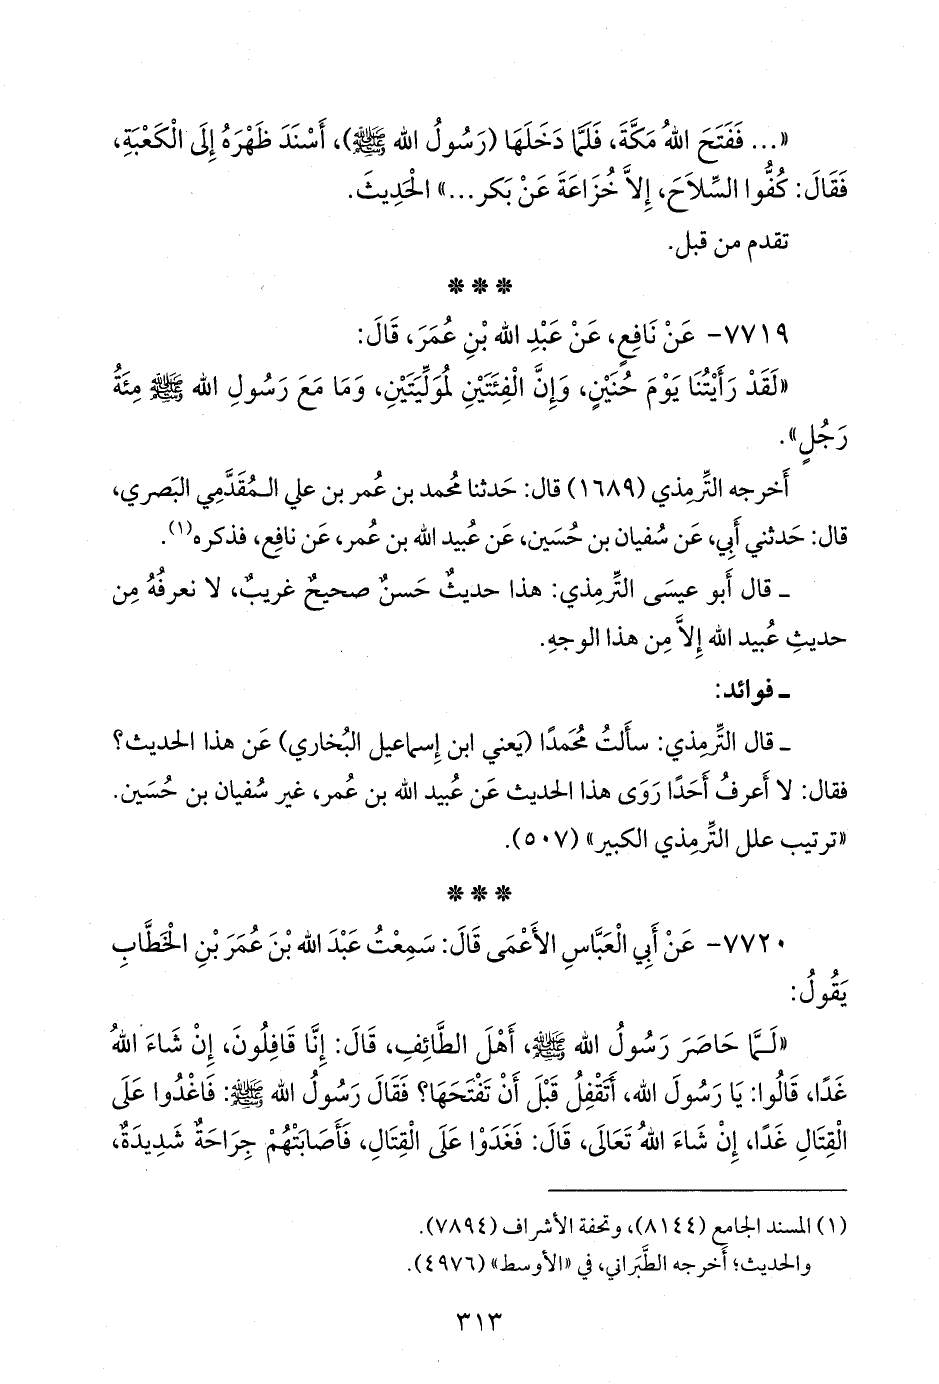 «... فَفَتَحَ اللهُ مَكَّةَ، فَلَمَّا دَخَلَهَا (رَسُولُ الله ﷺ)، أَسْنَدَ ظَهْرَهُ إِلَى الْكَعْبَةِ،
فَقَالَ: كُفُّوا السِّلاَحَ، إِلاَّ خُزَاعَةَ عَنْ بَكر...» الْحَدِيثَ.
تقدم من قبل.
* * *
٧٧١٩- عَنْ نَافِعٍ، عَنْ عَبْدِ الله بْنِ عُمَرَ، قَالَ:
«لَقَدْ رَأَيْتُنَا يَوْمَ حُنَيْنٍ، وَإِنَّ الْفِئَتَيْنِ لَمُوَلِّيَتَيْنِ، وَمَا مَعَ رَسُولِ الله ﷺ مِئَةُ
رَجُلٍ».
أَخرجه التِّرمِذي (١٦٨٩) قال: حَدثنا مُحمد بن عُمر بن علي الـمُقَدَّمِي البَصري،
قال: حَدثني أَبي، عَن سُفيان بن حُسَين، عَن عُبيد الله بن عمر، عَن نافِع، فذكره(١).
ـ قال أَبو عيسَى التِّرمِذي: هذا حديثٌ حَسنٌ صحيحٌ غريبٌ، لا نعرفُهُ مِن
حديثِ عُبيد الله إِلاَّ مِن هذا الوجهِ.
ـ فوائد:
ـ قال التِّرمِذي: سأَلتُ مُحَمدًا (يَعني ابن إِسماعيل البُخاري) عَن هذا الحديث؟
فقال: لا أَعرفُ أَحَدًا رَوَى هذا الحديث عَن عُبيد الله بن عُمر، غير سُفيان بن حُسَين.
«ترتيب علل التِّرمِذي الكبير» (٥٠٧).
* * *
٧٧٢٠- عَنْ أَبِي الْعَبَّاسِ الأَعْمَى قَالَ: سَمِعْتُ عَبْدَ الله بْنَ عُمَرَ بْنِ الْخَطَّابِ
يَقُولُ:
«لَـمَّا حَاصَرَ رَسُولُ الله ﷺ، أَهْلَ الطَّائِفِ، قَالَ: إِنَّا قَافِلُونَ، إِنْ شَاءَ اللهُ
غَدًا، قَالُوا: يَا رَسُولَ الله، أَتَقْفِلُ قَبْلَ أَنْ تَفْتَحَهَا؟ فَقَالَ رَسُولُ الله ﷺ: فَاغْدُوا عَلَى
الْقِتَالِ غَدًا، إِنْ شَاءَ اللهُ تَعَالَى، قَالَ: فَغَدَوْا عَلَى الْقِتَالِ، فَأَصَابَتْهُمْ جِرَاحَةٌ شَدِيدَةٌ،
(١) المسند الجامع (٨١٤٤)، وتحفة الأشراف (٧٨٩٤).
والحديث؛ أَخرجه الطَّبَراني، في «الأوسط» (٤٩٧٦).
٣١٣